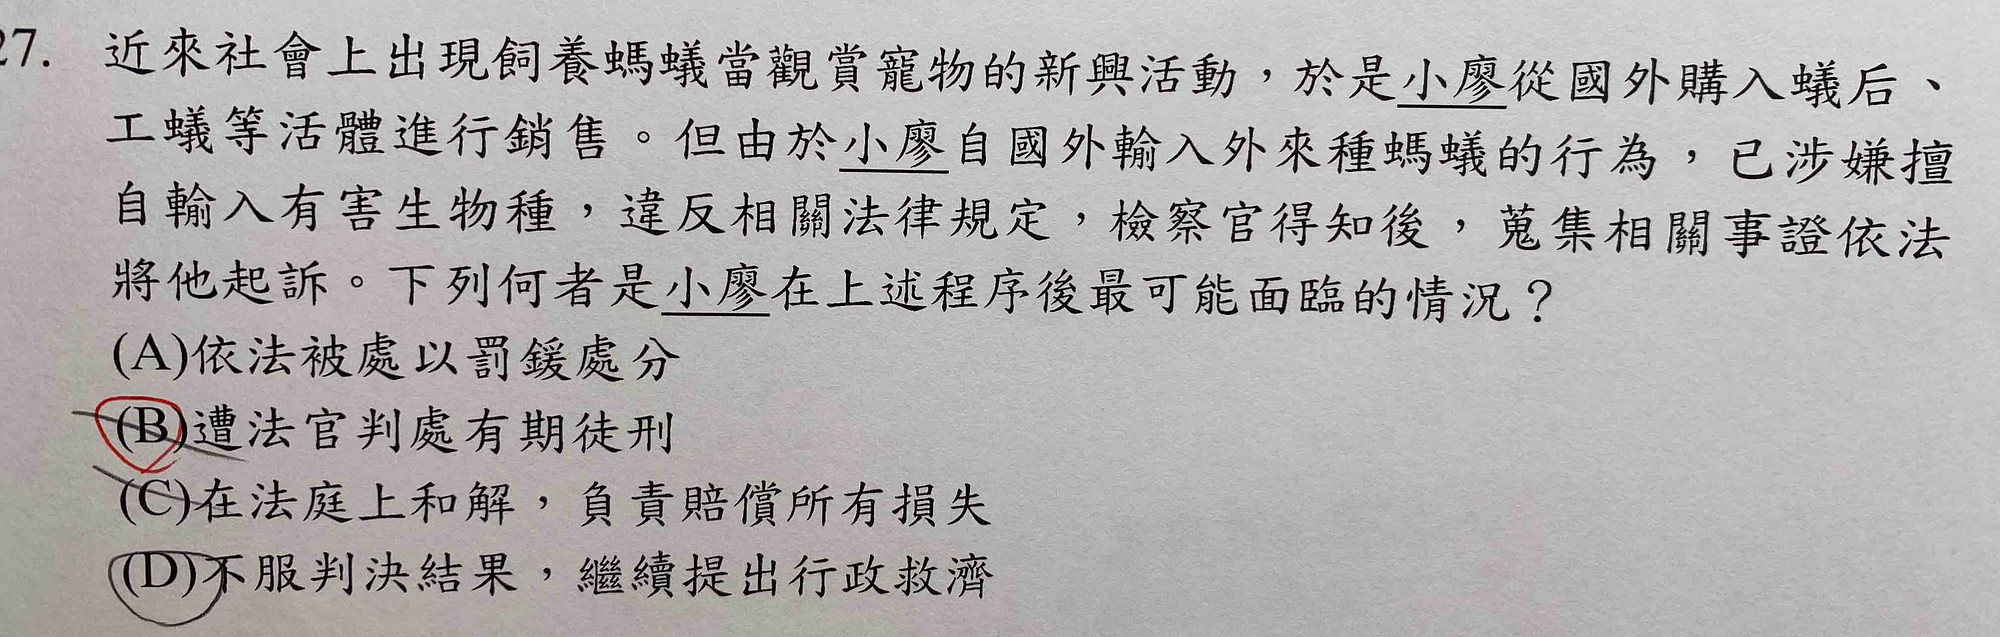 27. 近來社會上出現飼養螞蟻當觀賞寵物的新興活動，於是小廖從國外購入蟻后、
工蟻等活體進行銷售。但由於小廖自國外輸入外來種螞蟻的行為，已涉嫌擅
自輸入有害生物種，違反相關法律規定，檢察官得知後，蒐集相關事證依法
將他起訴。下列何者是小廖在上述程序後最可能面臨的情況？
(A)依法被處以罰鍰處分
(B)遭法官判處有期徒刑
(C)在法庭上和解，負責賠償所有損失
(D)不服判決結果，繼續提出行政救濟